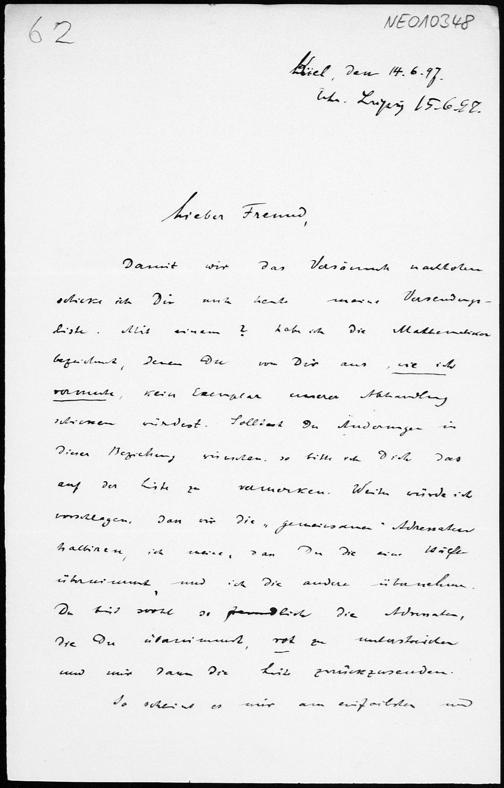 62
NEO10348
Kiel, den 14.6.97.
Leipzig 15.6.97.
Lieber Freund,
Damit wir das Versäumte nachholen
schicke ich Dir noch heute meine Versendungs-
liste. Mit einem ? habe ich die Mathematiker
bezeichnet, denen Du von Dir aus, wie ich
vermute, kein Exemplar unserer Abhandlung
schicken würdest. Solltest Du Änderungen in
dieser Beziehung wünschen, so bitte ich Dich das
auf der Liste zu vermerken. Weiter würde ich
vorschlagen, dass wir die „gemeinsamen" Adressaten
halbiren, ich meine, dass Du die eine Hälfte
übernimmst, und ich die andere übernehme.
Du bist wohl so freundlich die Adressaten,
die Du übernimmst, rot zu unterstreichen
und mir dann die Liste zurückzusenden.
So scheint es mir am einfachsten und